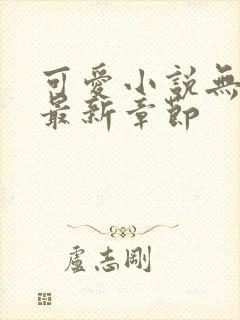 可愛小說無
最新章節
盧志剛